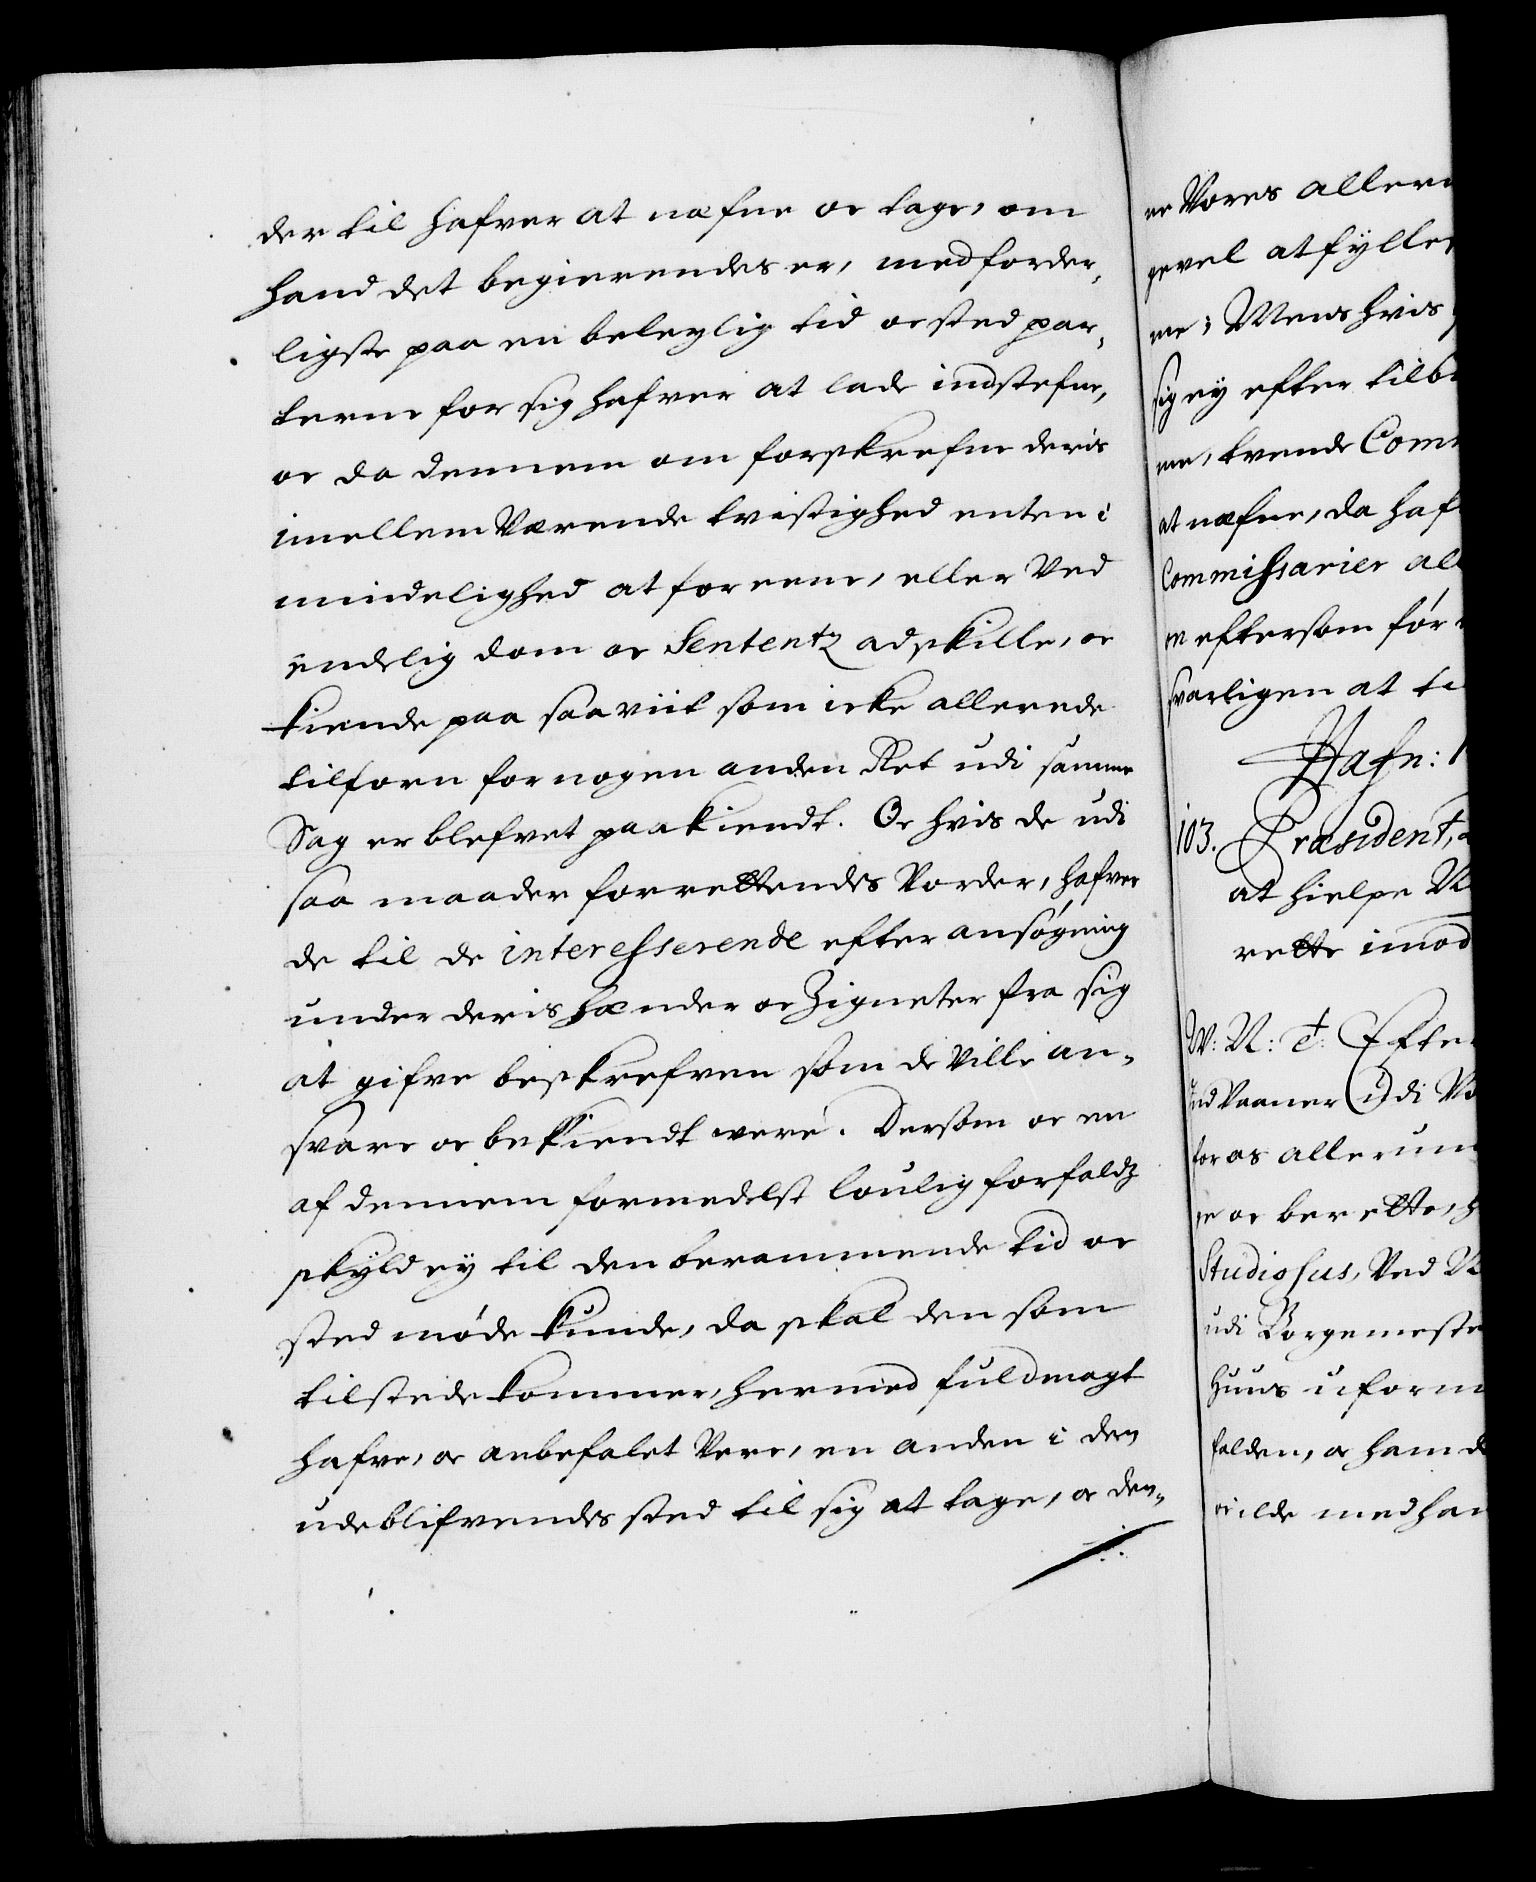 der til hafver at næfne oc tage, om
hand det begierendes er, med forder¬
ligste paa en beleylig tid oc sted par¬
terne for sig hafver at lade indstefne,
oc da dennem om forskrefne deris
imellem Værende tvistighed enten i
mindelighed at foreene, eller Ved
endelig dom oc Sententz adskille, oc
kiende paa saaviit som icke allerede
tilforn for nogen anden Ret udi samme
Sag er blefvet paakiendt. Oc hvis de udi
saa maader forrettendes Vorder, hafver
de til de interesserende efter ansøgning
under deris hænder oc Zigneter fra sig
at gifve beskrefven som de Ville an¬
svare oc bekiendt were. Dersom oc en
af dennem formedelst lovlig forfaldz
skyld ey til den berammende tid oc
sted møde kunde, da skal den som
tilstede kommer, hermed fuldmagt
hafve, oc anbefalet Vere, en anden i den
udeblifvendes sted til sig at tage, oc den¬
re Vores aller
gevel at fylle
me; Mens hvis
sig ey efter tilb
me, tvende Com
at næfne, da haf
Commissarier al
en eftersom før
svarligen at
Hafn:
103. Præsident,
at hielpe
rette imod
W: U: t: Efter
ind Vaaner udi
for os allerun
ge oc berette, h
Studiosus, Ved
udi Borgemeste
huus uform
falden, oc ham
ilde medhan